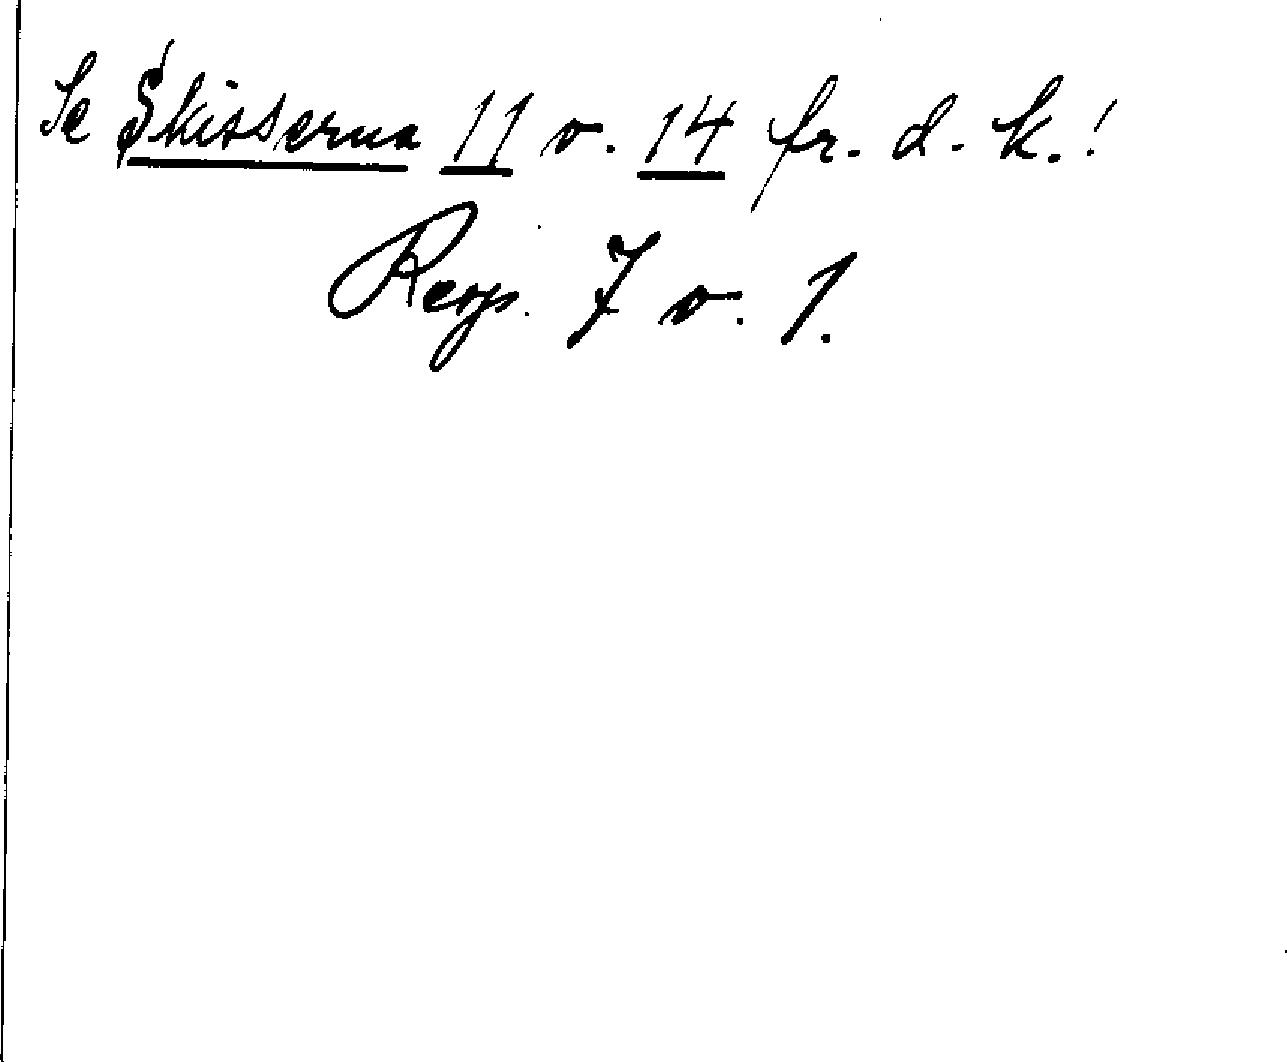 Se Skisserna 11 o. 14 fr. d. k.!
Resp. 7 o. 1.